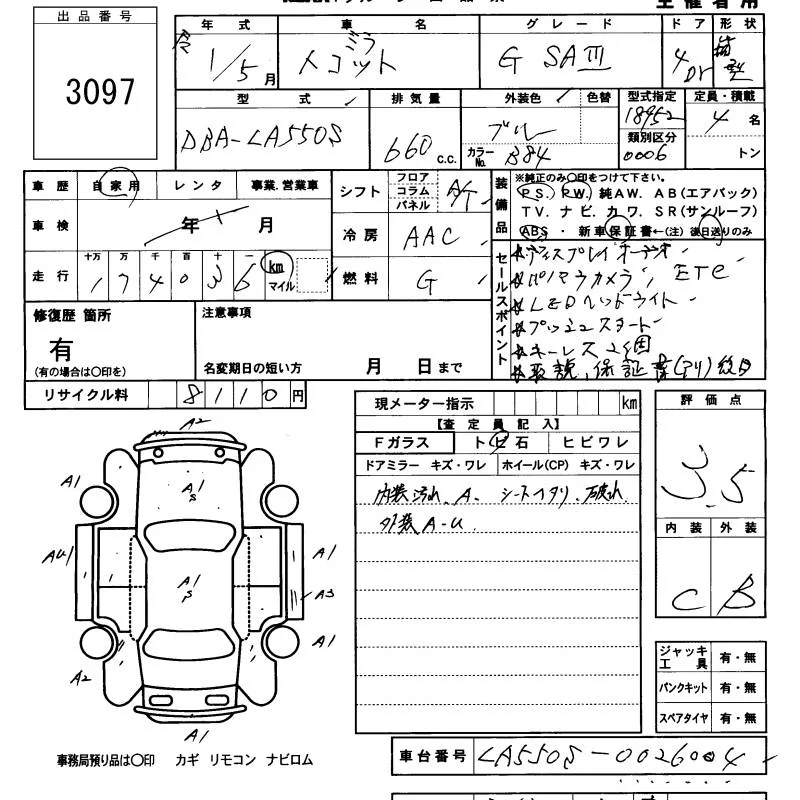 出品番号
3097
年式
車名
グレード
ドア
形状
令
1/5月
ミラ
トコット
G SAⅢ
4Dr
型式
排気量
外装色
色替
型式指定
定員・積載
DBA-LA550S
660 c.c.
ブルー
カラーNo. B84
18952
類別区分
0006
4名
トン
車歴
自家用
レンタ
事業.営業車
シフト
フロア
コラム
パネル
A/T
装備品
※純正のみ〇印をつけて下さい。
PS. PW. 純AW. AB(エアバック)
TV. ナビ. カワ. SR(サンルーフ)
ABS・新車保証書←(注) 後日送りのみ
車検
年
月
冷房
AAC
走行
十万
万
千
百
十
一
1 7 4 0 3 6
km
マイル
燃料
G
セールスポイント
ディスプレイオーディオ
パノラマカメラ, ETC
LEDヘッドライト
プッシュスタート
キーレス2個
取説, 保証書(アリ)後日
修復歴 箇所
有
(有の場合は〇印を)
注意事項
名変期日の短い方
月
日まで
リサイクル料
8110円
現メーター指示
km
【査定員記入】
Fガラス
トビ石
ヒビワレ
ドアミラー キズ・ワレ
ホイール(CP) キズ・ワレ
内装汚れ, A, シートヘタリ, 破れ
外装A-U
評価点
3.5
内装
外装
C
B
A2
A1
A1
S
A1
A1
S
AU
A1
A3
A1
A2
A1
ジャッキ
工具
有・無
パンクキット
有・無
スペアタイヤ
有・無
事務局預り品は〇印
カギ リモコン ナビロム
車台番号
LA550S-0026004